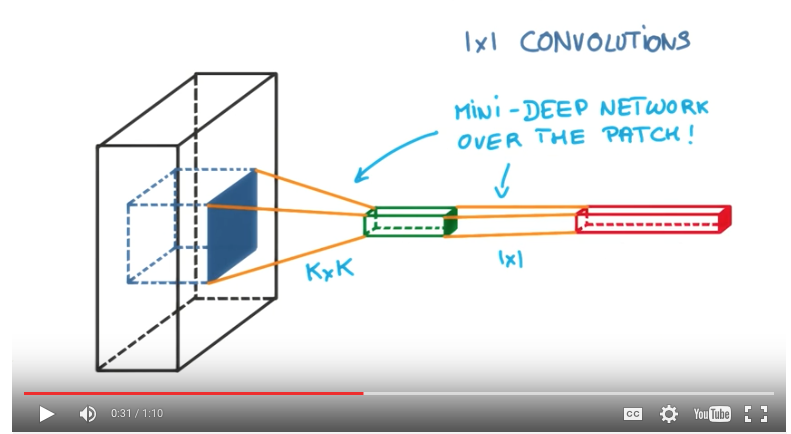 1x1 CONVOLUTIONS
MINI-DEEP NETWORK
OVER THE PATCH!
KxK
1x1
0:31 / 1:10
CC
YouTube